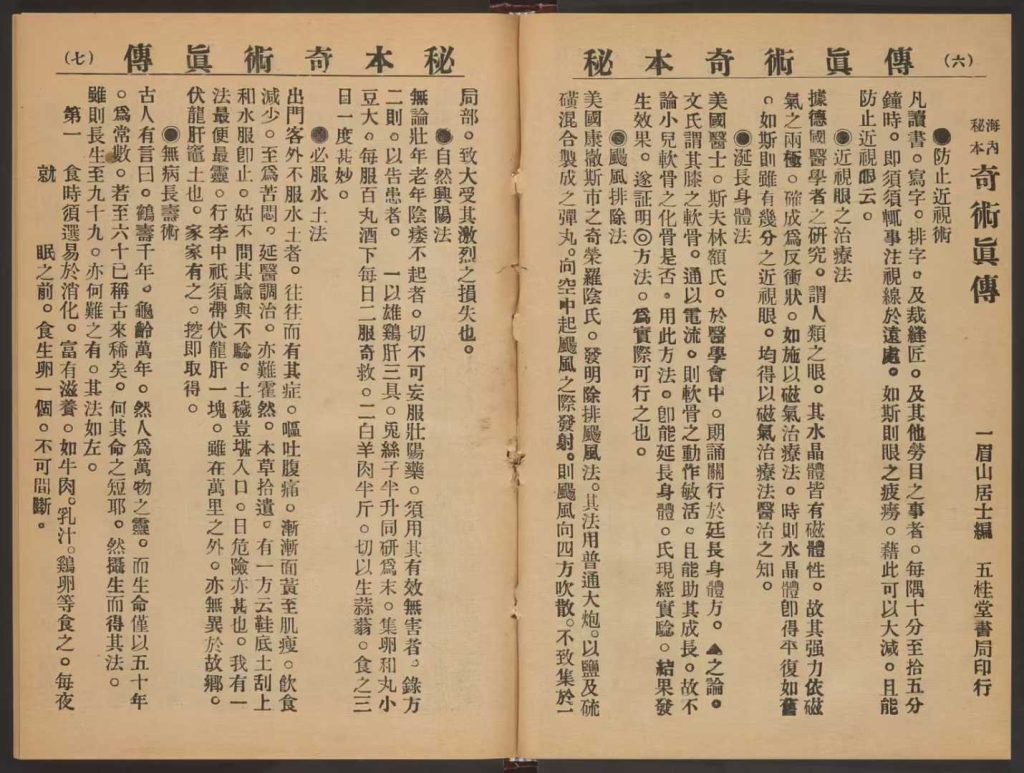 秘本奇術眞傳
（六）
海內秘本
奇術眞傳
一眉山居士編
五桂堂書局印行
●防止近視術
凡讀書。寫字。排字。及裁縫匠。及其他勞目之事者。每隅十分至拾五分
鐘時。即須須輒事注視線於遠處。如斯則眼之疲癆。藉此可以大減。且能
防止近視眼云。
●近視眼之治療法
據德國醫學者之研究。謂人類之眼。其水晶體皆有磁體性。故其强力依磁
氣之兩極。確成爲反衝狀。如施以磁氣治療法。時則水晶體卽得平復如舊
。如斯則雖有幾分之近視眼。均得以磁氣治療法醫治之知。
●涎長身體法
美國醫士。斯夫林額氏。於醫學會中。朗誦關行於廷長身體方。▲之論。
文氏謂其膝之軟骨。通以電流。則軟骨之動作敏活。且能助其成長。故不
論小兒軟骨之化骨是否。用此方法。卽能延長身體。氏現經實驗。結果發
生效果。遂証明◎方法。爲實際可行之也。
●颶風排除法
美國康撒斯市之奇榮羅陰氏。發明除排颶風法。其法用普通大炮。以鹽及硫
磺混合製成之彈丸。向空中起颶風之際發射。則颶風向四方吹散。不致集於一
秘本奇術眞傳
（七）
局部。致大受其激烈之損失也。
●自然興陽法
無論壯年老年陰痿不起者。切不可妄服壯陽藥。須用其有效無害者。錄方
二則。以告患者。　一以雄鷄肝三具。兎絲子半升同研爲末。集卵和丸小
豆大。每服百丸酒下每日二服奇救。二白羊肉半斤。切以生蒜薤。食之三
日一度甚妙。
●必服水土法
出門客外不服水土者。往往而有其症。嘔吐腹痛。漸漸面黃至肌瘦。飲食
減少。至爲苦悶。延醫調治。亦難霍然。本草拾遺。有一方云鞋底土刮上
和水服卽止。姑不問其驗與不驗。土穢豈堪入口。日危險亦甚也。我有一
法最便最靈。行李中祇須帶伏龍肝一塊。雖在萬里之外。亦無異於故鄉。
伏龍肝竈土也。家家有之。挖即取得。
●無病長壽術
古人有言曰。鶴壽千年。龜齡萬年。然人爲萬物之靈。而生命僅以五十年
。爲常數。若至六十已稱古來稀矣。何其命之短耶。然攝生而得其法。
雖則長生至九十九。亦何難之有。其法如左。
第一　食時須選易於消化。富有滋養。如牛肉。乳汁。鷄卵等食之。每夜
就　眠之前。食生卵一個。不可間斷。